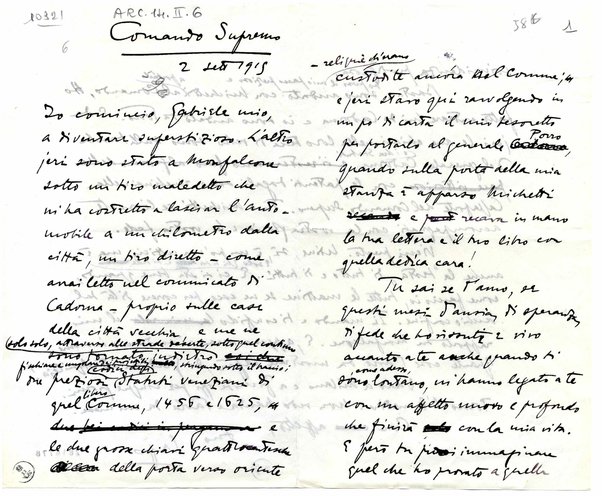 10321
ARC. 14. II. 6
58 b
1
6
Comando Supremo
2 sett 1915
Io comincio, Gabriele mio,
a diventare superstizioso. L'altro
jeri sono stato a Monfalcone
sotto un tiro maladetto che
mi ha costretto a lasciar l'auto-
mobile a un chilometro dalla
città, un tiro diretto – come
avrai letto nel comunicato di
Cadorna – proprio sulle case
della città vecchia e me ne
solo solo, attraverso alle strade deserte, sotto quel continuo
sono tornato indietro
due preziosi Statuti veneziani di
codici degli
quel libero Comune, 1456 e 1625,
e
le due grosse chiavi quattrocentesche
della porta verso oriente
– reliquie
custodite ancora nel Comune;
e jeri stavo qui ravvolgendo in
un po' di carta il mio tesoretto
per portarlo al generale Porro,
quando sulla porta della mia
stanza è apparso Michetti
e recava in mano
la tua lettera e il tuo libro con
quella dedica cara!
Tu sai se t'amo, se
questi mesi d'ansia, di speranza,
di fede che ho vissuto e vivo
accanto a te anche quando ti
sono lontano, come adesso, mi hanno legato a te
con un affetto nuovo e profondo
che finirà solo con la mia vita.
E però tu puoi immaginare
quel che ho provato a quelle